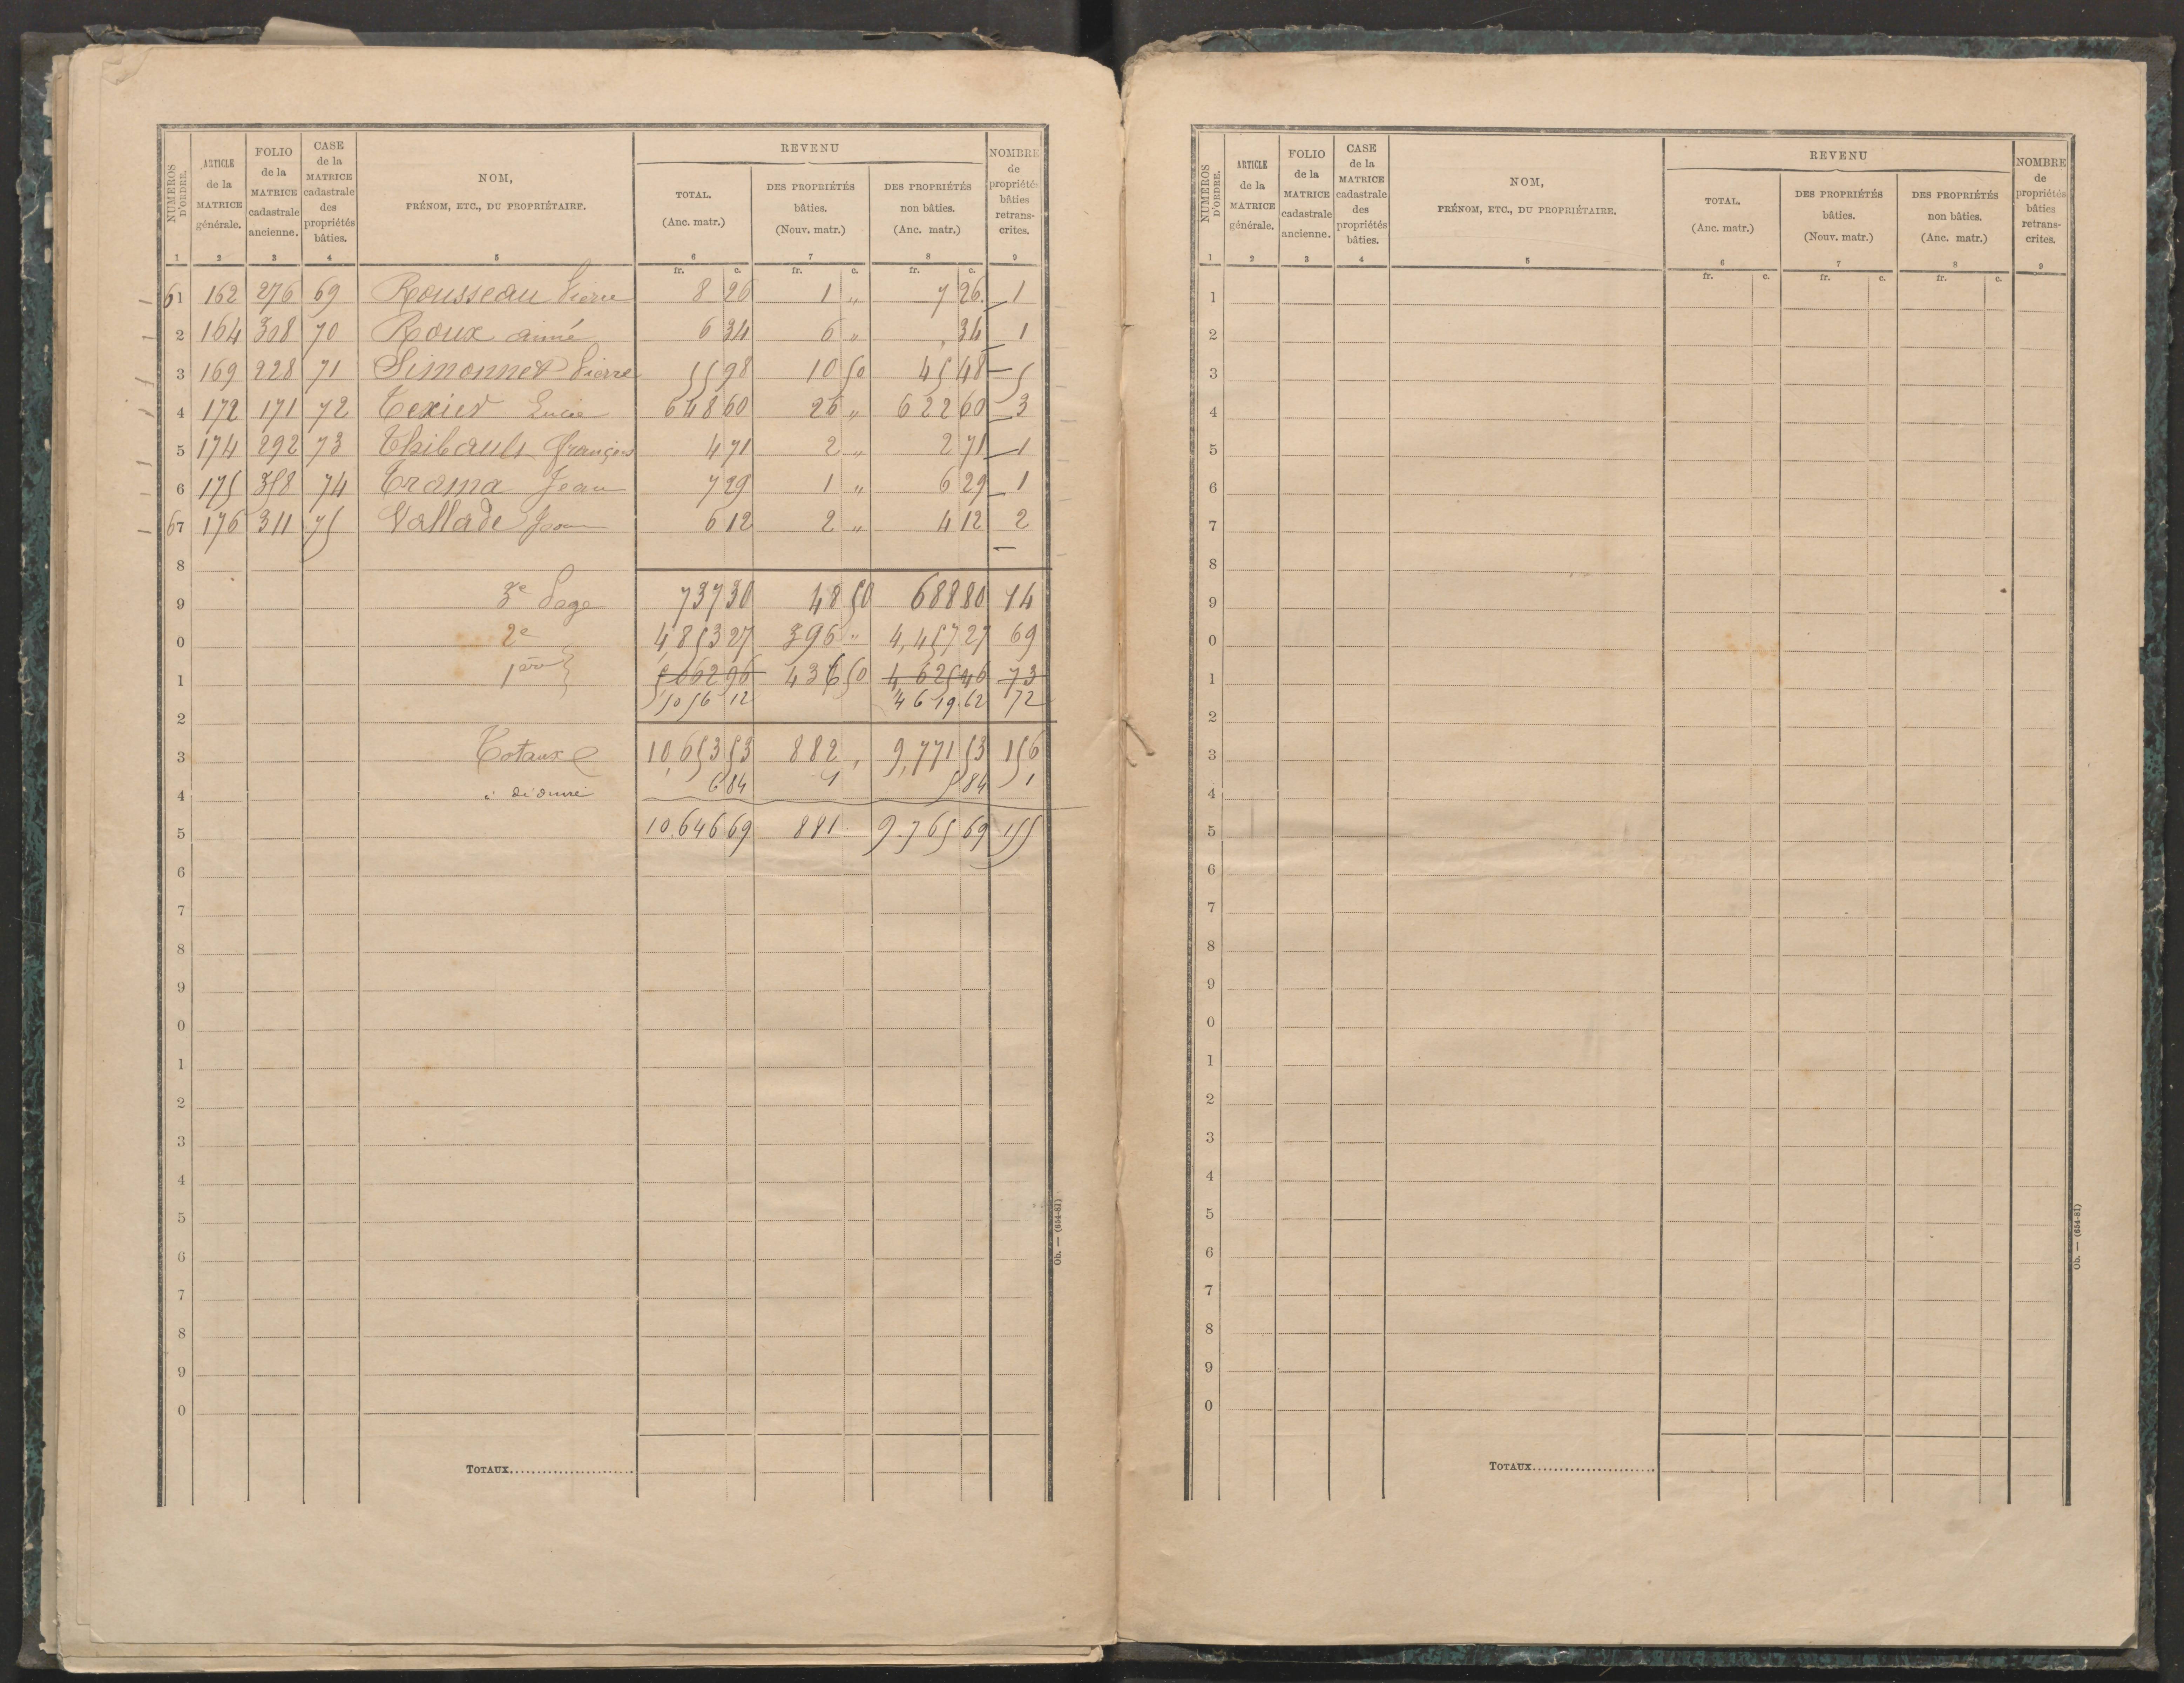 NUMÉROS D'ORDRE. ARTICLE de la MATRICE générale. FOLIO de la MATRICE cadastrale ancienne. CASE de la MATRICE cadastrale des propriétés bâties. NOM, PRÉNOM, ETC., DU PROPRIÉTAIRE. REVENU TOTAL. (Anc. matr.) DES PROPRIÉTÉS bâties. (Nouv. matr.) DES PROPRIÉTÉS non bâties. (Anc. matr.) NOMBRE de propriétés bâties retranscrites.
1 2 3 4 5 6 7 8 9
fr. c. fr. c. fr. c.
61 162 276 69 Rousseau Pierre 8 26 1 „ 7 26 1
2 164 308 70 Roux aimé 6 34 6 „ 34 1
3 169 228 71 Simonnet Pierre 55 98 10 50 45 48 5
4 172 171 72 Texier Lucie 648 60 26 „ 622 60 3
5 174 292 73 Thibault François 4 71 2 „ 2 71 1
6 175 358 74 Trama Jean 7 29 1 „ 6 29 1
67 176 311 75 Vallade Jean 6 12 2 „ 4 12 2
8
9 3e Page 737 30 48 50 688 80 14
0 2e 4,853 27 396 „ 4,457 27 69
1 1ère 5,062 96 436 50 4,625 46 73
5056 12 4619.62 72
2
3 Totaux 10,653 53 882 9,771 53 156
6 84 1 5 84 1
4 à déduire
5 10.646 69 881 9.765 69 155
6
7
8
9
0
1
2
3
4
5
6
7
8
9
0
TOTAUX
Ob. — (654-81)
NUMÉROS D'ORDRE. ARTICLE de la MATRICE générale. FOLIO de la MATRICE cadastrale ancienne. CASE de la MATRICE cadastrale des propriétés bâties. NOM, PRÉNOM, ETC., DU PROPRIÉTAIRE. REVENU TOTAL. (Anc. matr.) DES PROPRIÉTÉS bâties. (Nouv. matr.) DES PROPRIÉTÉS non bâties. (Anc. matr.) NOMBRE de propriétés bâties retranscrites.
1 2 3 4 5 6 7 8 9
fr. c. fr. c. fr. c.
1
2
3
4
5
6
7
8
9
0
1
2
3
4
5
6
7
8
9
0
1
2
3
4
5
6
7
8
9
0
TOTAUX
Ob. — (654-81)